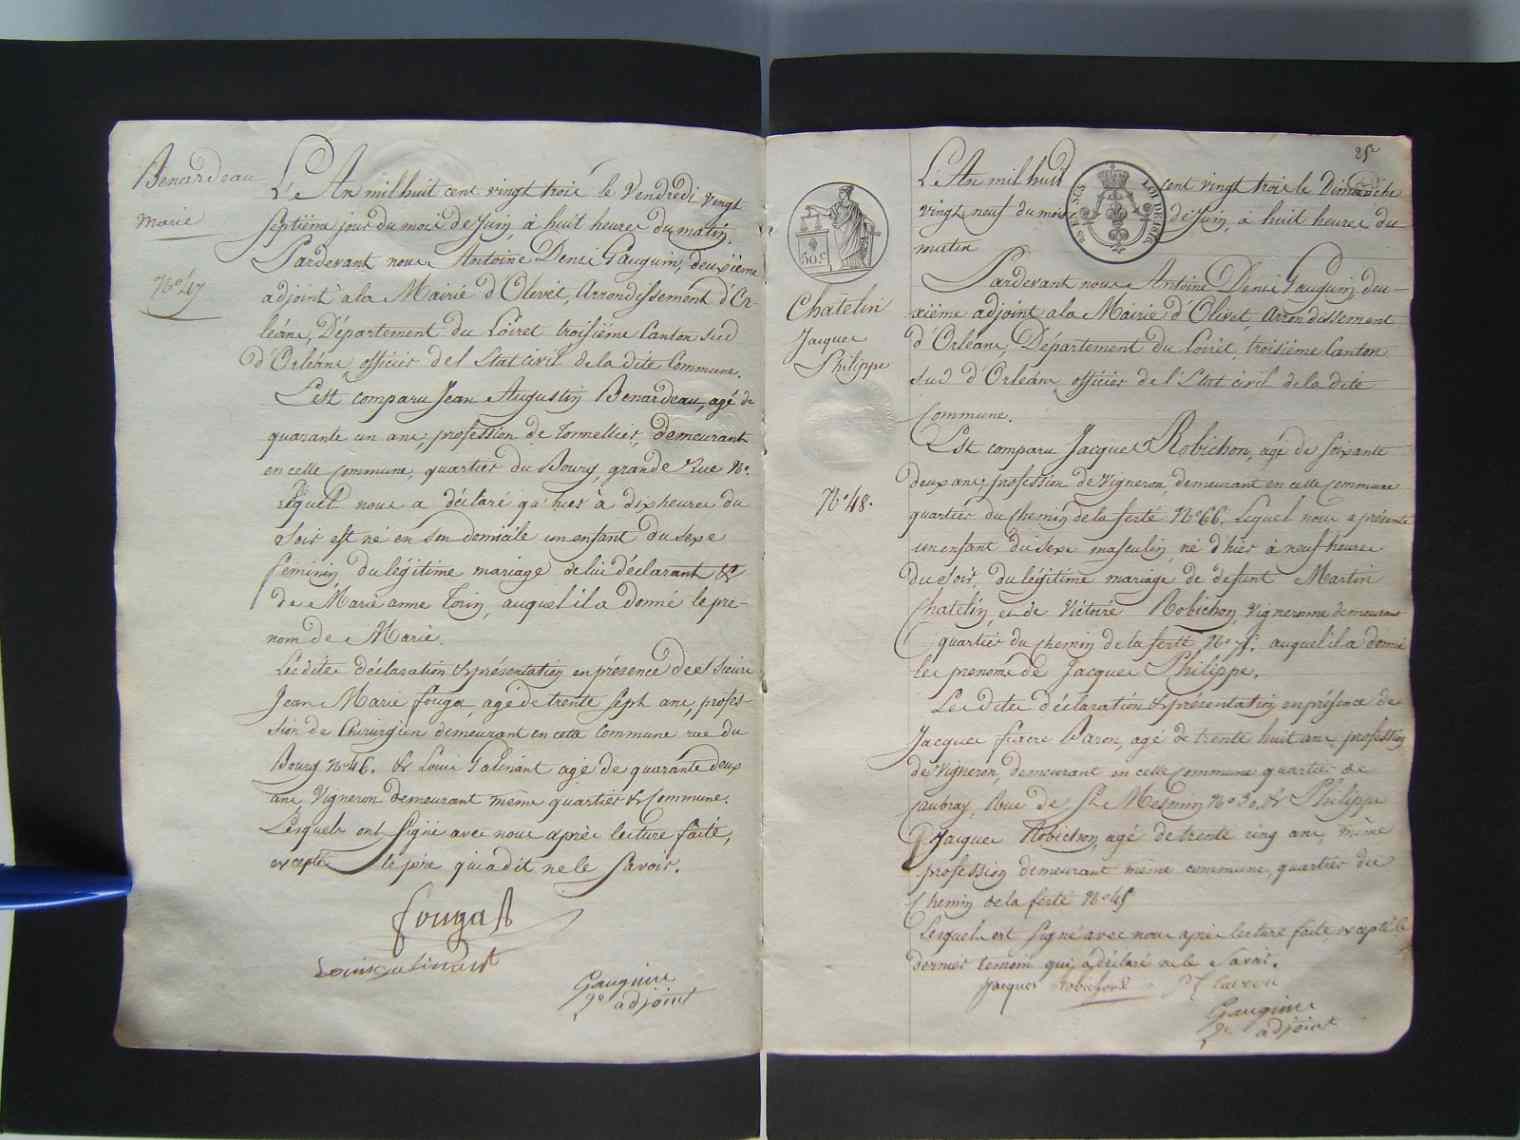 Benardeau
Marie
No. 47
L'An mil huit cent vingt trois le Vendredi vingt
septiême jour du mois de Juin, à huit heures du matin.
Pardevant nous Antoine Denis Gauguin, deuxième
adjoint à la Mairie d'Olivet, Arrondissement d'Or-
léans, Département du Loiret troisiême Canton sud
d'Orléans, officier de l'Etat civil de la dite Commune.
Est comparu Jean Augustin Benardeau, agé de
quarante un ans, profession de Tonnellier, demeurant
en cette Commune, quartier du Bourg, grande Rue No.
lequel nous a déclaré qu'hier à dix heures du
soir est né en son domicile un enfant du sexe
féminin, du légitime mariage de lui déclarant &
de Marie anne Torin, auquel il a donné le pré-
nom de Marie.
Les dites déclaration & présentation en présence des Sieurs
Jean Marie fouga, agé de trente sept ans, profes-
sion de Chirurgien demeurant en cette Commune rue du
Bourg No. 46. & Louis Galinant agé de quarante deux
ans Vigneron demeurant même quartier & Commune.
Lesquels ont signé avec nous après lecture faite,
excepté le père qui a dit ne le savoir.
fouga
Louis galinant
Gauguin
2e adjoint
25
50 c
LOI DE 1816
Chatelin
Jacques
Philippe
No. 48.
L'An mil huit cent vingt trois le Dimanche
vingt neuf du mois de Juin, à huit heures du
matin
Pardevant nous Antoine Denis Gauguin deu-
xième adjoint à la Mairie d'Olivet Arrondissement
d'Orléans, Département du Loiret, troisième Canton
sud d'Orléans, officier de l'Etat civil de la dite
Commune.
Est comparu Jacques Robichon, agé de soixante
deux ans, profession de Vigneron, demeurant en cette Commune
quartier du Chemin de la ferté No. 66. Lequel nous a présenté
un enfant du sexe masculin, né d'hier à neuf heures
du soir, du légitime mariage de defunt Martin
Chatelin, et de Victoire Robichon, Vigneronne demeurant
quartier du chemin de la ferté, No. auquel il a donné
les prenoms de Jacques Philippe.
Les dites déclaration & présentation en présence de
Jacques fiacre Baron, agé de trente huit ans profession
de Vigneron, demeurant en cette Commune quartier de
Caubray, Rue de St. Mesmin No. 30, & Philippe
Jacques Robichon, agé de trente cinq ans, même
profession demeurant même commune, quartier du
Chemin de la ferté No. 45
Lesquels ont signé avec nous après lecture faite, excepté le
dernier temoin qui a déclaré ne le savoir.
Jacques Robichon
Gauguin
2e adjoint